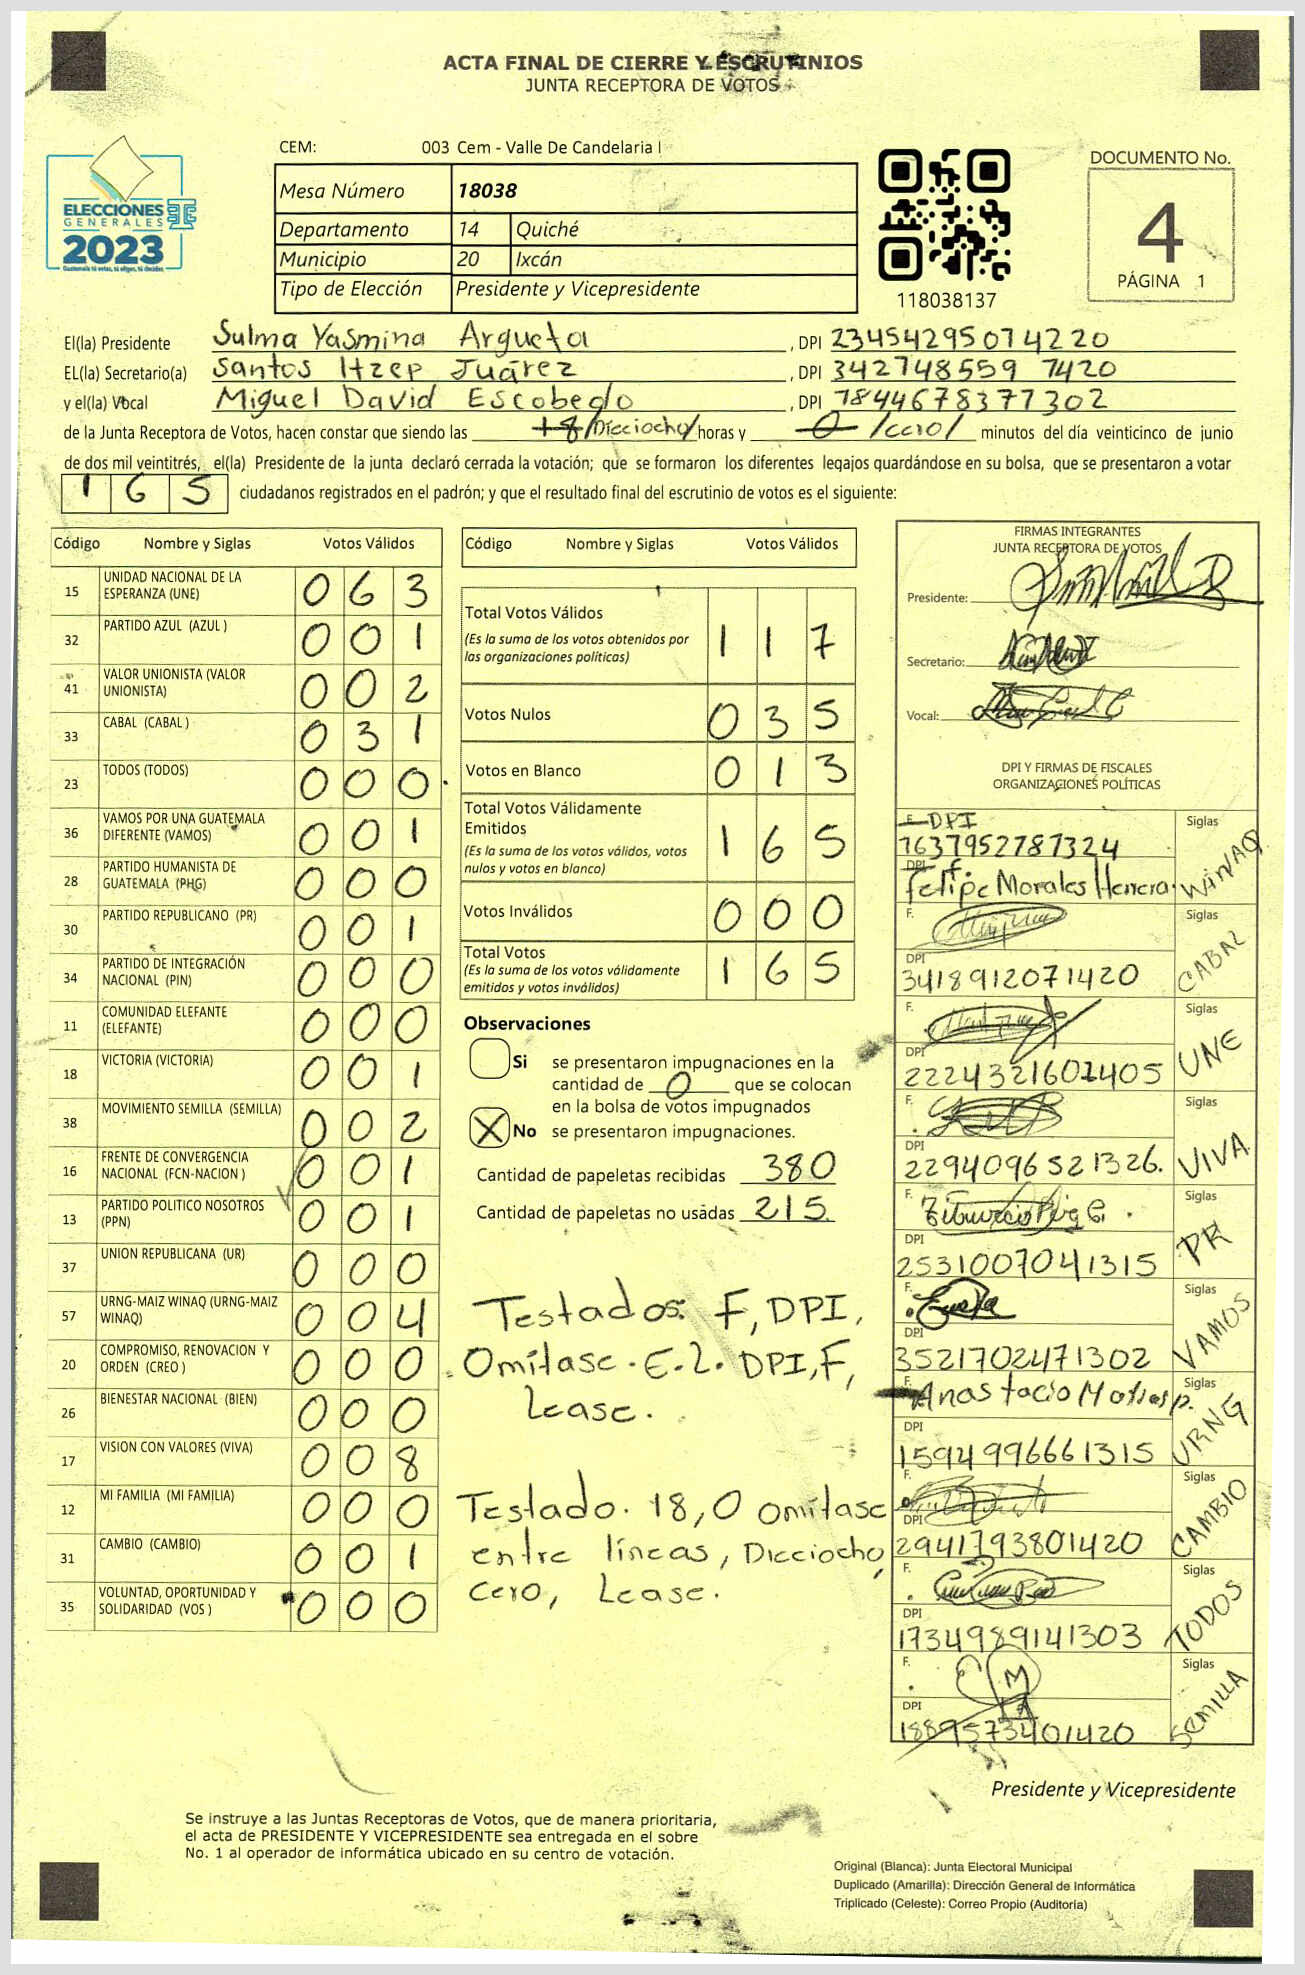 ACTA FINAL DE CIERRE Y ESCRUTINIOS
JUNTA RECEPTORA DE VOTOS
CEM: 003 Cem - Valle De Candelaria I
ELECCIONES
GENERALES
2023
Guatemala tú votas, tú eliges, tú decides
Mesa Número 18038
Departamento 14 Quiché
Municipio 20 Ixcán
Tipo de Elección Presidente y Vicepresidente
118038137
DOCUMENTO No.
4
PÁGINA 1
El(la) Presidente Sulma Yasmina Argueta , DPI 23454295074220
EL(la) Secretario(a) Santos Itzep Juárez , DPI 342748559 7420
y el(la) Vocal Miguel David Escobedo , DPI 7844678377302
de la Junta Receptora de Votos, hacen constar que siendo las 18 /Dicciocho/ horas y 0 /cero/ minutos del día veinticinco de junio
de dos mil veintitrés, el(la) Presidente de la junta declaró cerrada la votación; que se formaron los diferentes legajos guardándose en su bolsa, que se presentaron a votar
1 6 5 ciudadanos registrados en el padrón; y que el resultado final del escrutinio de votos es el siguiente:
Código Nombre y Siglas Votos Válidos
15 UNIDAD NACIONAL DE LA ESPERANZA (UNE) 0 6 3
32 PARTIDO AZUL (AZUL ) 0 0 1
41 VALOR UNIONISTA (VALOR UNIONISTA) 0 0 2
33 CABAL (CABAL ) 0 3 1
23 TODOS (TODOS) 0 0 0
36 VAMOS POR UNA GUATEMALA DIFERENTE (VAMOS) 0 0 1
28 PARTIDO HUMANISTA DE GUATEMALA (PHG) 0 0 0
30 PARTIDO REPUBLICANO (PR) 0 0 1
34 PARTIDO DE INTEGRACIÓN NACIONAL (PIN) 0 0 0
11 COMUNIDAD ELEFANTE (ELEFANTE) 0 0 0
18 VICTORIA (VICTORIA) 0 0 1
38 MOVIMIENTO SEMILLA (SEMILLA) 0 0 2
16 FRENTE DE CONVERGENCIA NACIONAL (FCN-NACION ) 0 0 1
13 PARTIDO POLITICO NOSOTROS (PPN) 0 0 1
37 UNION REPUBLICANA (UR) 0 0 0
57 URNG-MAIZ WINAQ (URNG-MAIZ WINAQ) 0 0 4
20 COMPROMISO, RENOVACION Y ORDEN (CREO ) 0 0 0
26 BIENESTAR NACIONAL (BIEN) 0 0 0
17 VISION CON VALORES (VIVA) 0 0 8
12 MI FAMILIA (MI FAMILIA) 0 0 0
31 CAMBIO (CAMBIO) 0 0 1
35 VOLUNTAD, OPORTUNIDAD Y SOLIDARIDAD (VOS ) 0 0 0
Código Nombre y Siglas Votos Válidos
Total Votos Válidos 1 1 7
(Es la suma de los votos obtenidos por
las organizaciones políticas)
Votos Nulos 0 3 5
Votos en Blanco 0 1 3
Total Votos Válidamente
Emitidos 1 6 5
(Es la suma de los votos válidos, votos
nulos y votos en blanco)
Votos Inválidos 0 0 0
Total Votos 1 6 5
(Es la suma de los votos válidamente
emitidos y votos inválidos)
Observaciones
Si se presentaron impugnaciones en la
cantidad de 0 que se colocan
en la bolsa de votos impugnados
X No se presentaron impugnaciones.
Cantidad de papeletas recibidas 380
Cantidad de papeletas no usadas 215
Testados: F, DPI,
Omitase. E.L. DPI, F,
Lease.
Testado. 18, 0 omitase
entre líneas, Dicciocho,
cero, Lease.
FIRMAS INTEGRANTES
JUNTA RECEPTORA DE VOTOS
Presidente:
Secretario:
Vocal:
DPI Y FIRMAS DE FISCALES
ORGANIZACIONES POLÍTICAS
F. DPI Siglas
7637952787324
DPI F.
Felipe Morales Herrera WINAQ
F. Siglas
DPI CABAL
3418912071420
F. Siglas
DPI UNE
2224321602405
F. Siglas
DPI VIVA
2294096521326.
F. Siglas
DPI PR
2531007041315
F. Siglas
DPI VAMOS
3521702471302
F. Anastacio Matias p. Siglas
DPI URNG
1594996661315
F. Siglas
DPI CAMBIO
2941793801420
F. Siglas
DPI TODOS
1734989141303
F. Siglas
DPI SEMILLA
1889573401420
Presidente y Vicepresidente
Se instruye a las Juntas Receptoras de Votos, que de manera prioritaria,
el acta de PRESIDENTE Y VICEPRESIDENTE sea entregada en el sobre
No. 1 al operador de informática ubicado en su centro de votación.
Original (Blanca): Junta Electoral Municipal
Duplicado (Amarilla): Dirección General de Informática
Triplicado (Celeste): Correo Propio (Auditoría)